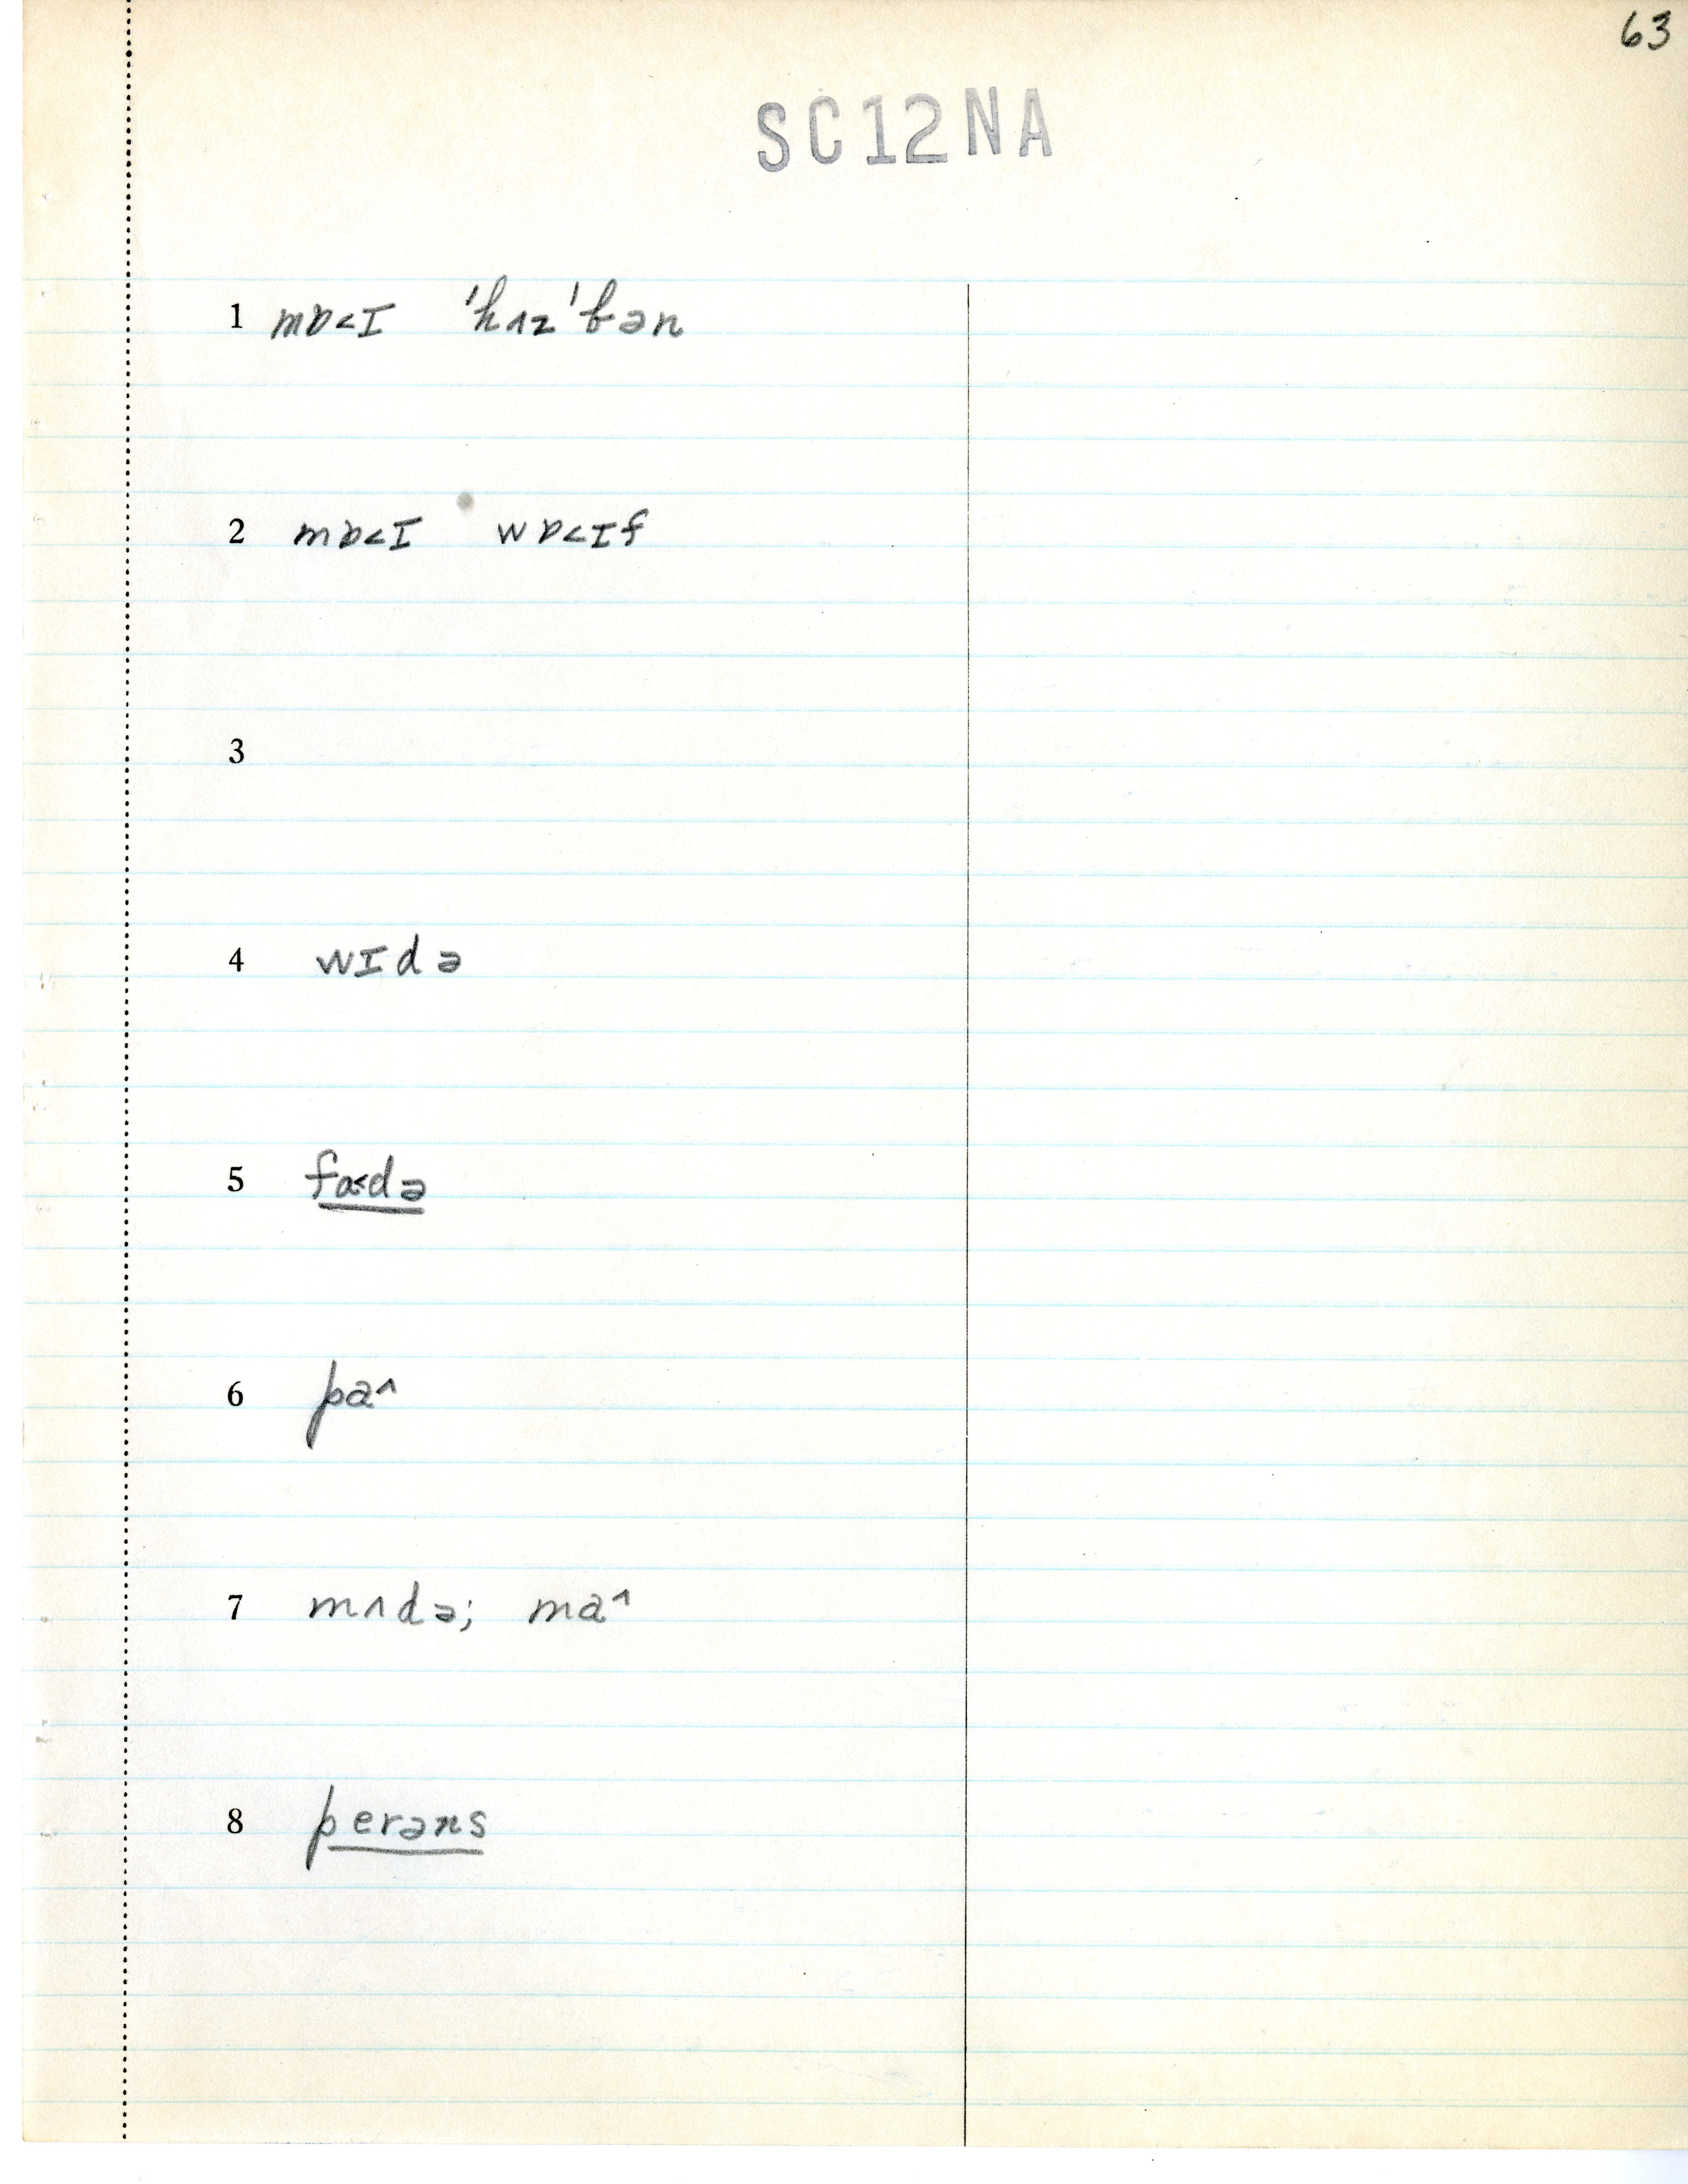 63
SC12NA
1 mɒ<ɪ 'hʌz'bən
2 mɒ<ɪ wɒ<ɪf
3
4 wɪdə
5 fa<də
6 pa^
7 mʌdə; ma^
8 perəns